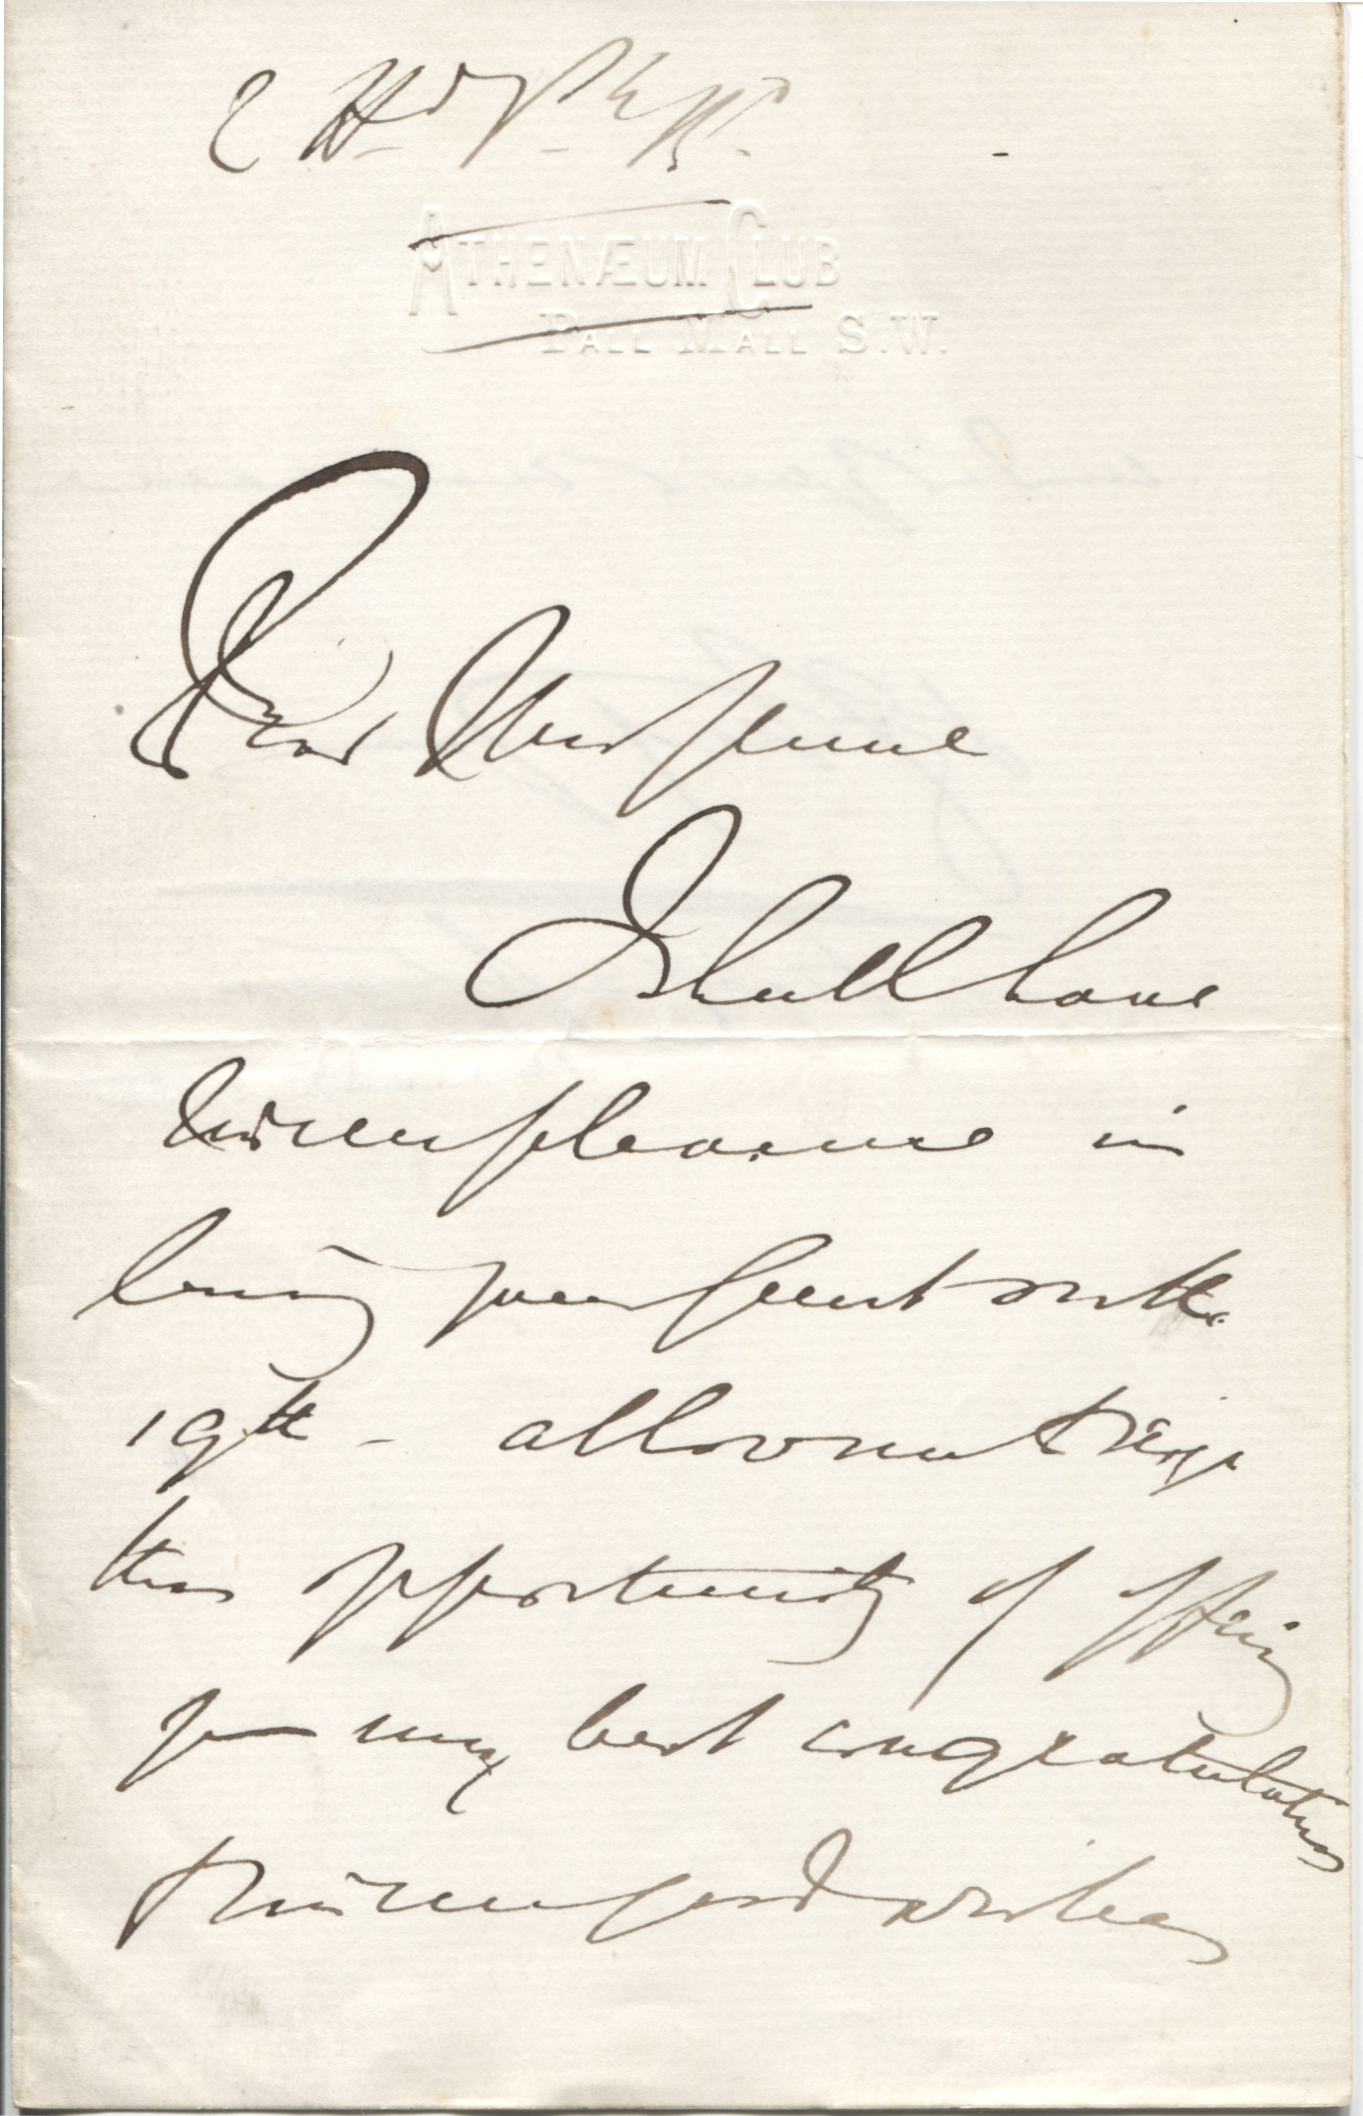 2 H. P. G.
ATHENÆUM CLUB
PALL MALL S.W.
Dear
I shall have
sincere pleasure in
being your guest on the
19th - allow me to
this opportunity of offering
you my best congratulations
& sincere good wishes